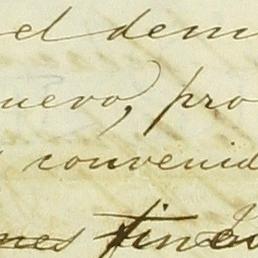 el dem
uevo, pro
convenid
mes fin